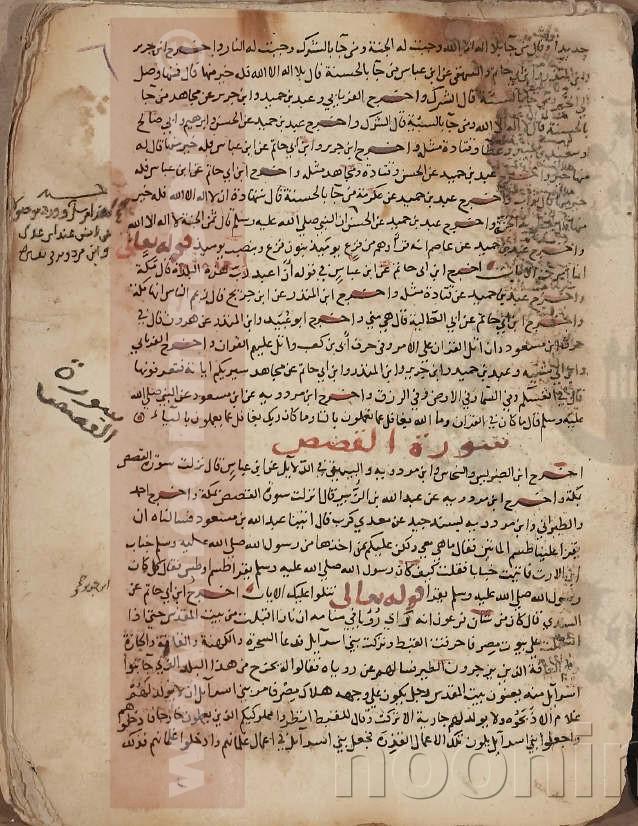 جديدا وقال من جا بلا اله الا الله وجبت له الجنة ومن جا بالشرك وجبت له النار واخرج ابن جرير
وابن المنذر وابن ابي حاتم والبيهقي عن ابن عباس من جا بالحسنة قال بلا اله الا الله فله خير منها قال فمنها وصل
الشرك واخرج الفريابي وعبد بن حميد وابن جرير عن مجاهد من جا
بالحسنة قال لا اله الا الله ومن جا بالسيئة قال الشرك واخرج عبد بن حميد عن الحسن وابرهيم وابي صالح
وعطا وقتادة مثله واخرج ابن جرير وابن ابي حاتم عن ابن عباس فله خير منها قال له
منها خير واخرج عبد بن حميد عن الحسن وقتادة ومجاهد مثله واخرج ابن ابي حاتم عن ابن عباس فله
واخرج عبد بن حميد عن عكرمة من جا بالحسنة قال شهادة ان لا اله الا الله فله خير
واخرج عبد بن حميد عن الحسن ان النبي صلى الله عليه وسلم قال ثمن الجنة لا اله الا الله
واخرج عبد بن حميد عن عاصم انه قرا وهم من فزع يومئذ بنون فزع وينصب يوميذ قوله تعالى
اخرج ابن ابي حاتم عن ابن عباس في قوله انما اعبد رب هذه البلدة قال مكة
واخرج عبد بن حميد عن قتادة مثله واخرج ابن المنذر عن ابن جريج قال زعم الناس انها مكة
واخرج ابن ابي حاتم عن ابي العالية قال هي مني واخرج ابو عبيد وابن المنذر عن هرون قال في
حرف ابن مسعود وان اتل القران على الامر وفي حرف ابي بن كعب واتل عليهم القران واخرج الفريابي
وابن ابي شيبة وعبد بن حميد وابن جرير وابن المنذر وابن ابي حاتم عن مجاهد سيريكم اياته فتعرفونها
قال في انفسكم وفي السما وفي الارض وفي الرزق واخرج ابن مردويه عن ابن مسعود عن النبي صلى الله
عليه وسلم قال ما كان في القران وما الله بغافل عما تعملون بالتا وما كان وما ربك بغافل عما يعملون باليآء
سورة القصص
اخرج ابن الضريس والنحاس وابن مردويه والبيهقي في الدلايل عن ابن عباس قال نزلت سورة القصص
بمكة واخرج ابن مردويه عن عبد الله بن الزبير قال نزلت سورة القصص بمكة واخرج احمد
والطبراني وابن مردويه بسند جيد عن معدي كرب قال اتينا عبد الله بن مسعود فسالناه ان
يقرا علينا طسم المائتين فقال ما هي معي ولكن عليكم عن اخذها من رسول الله صلى الله عليه وسلم خباب
ابن الارت فاتيت خبابا فقلت كيف كان رسول الله صلى الله عليه وسلم يقرا طسم او طس فقال كل كان
رسول الله صلى الله عليه وسلم يقرا قوله تعالى نتلوا عليك الايات اخرج ابن ابي حاتم عن
السدي قال كان من شان فرعون انه راى رؤيا في منامه ان نارا اقبلت من بيت المقدس حتى اذا
اشتملت على بيوت مصر فاحرقت القبط وتركت بني اسرآيل فدعا السحرة والكهنة والقافة والحازة
القافة الذين يزجرون الطير فسالهم عن روياه فقالوا له يخرج من هذا البلد الذي جا بنوا
اسرآيل منه يعنون بيت المقدس رجل يكون على وجهه هلاك مصر فامر ببني اسرآيل ان لا يولد لهم
غلام الا ذبحوه ولا يولد لهم جارية الا تركت وقال للقبط انظروا مملوكيكم الذين يعملون خارجا فادخلوهم
واجعلوا بني اسرآيل يلون تلك الاعمال القذرة فجعل بني اسرآيل في اعمال غلمانهم وادخلوا غلمانهم فذلك
سورة
القصص
noonin